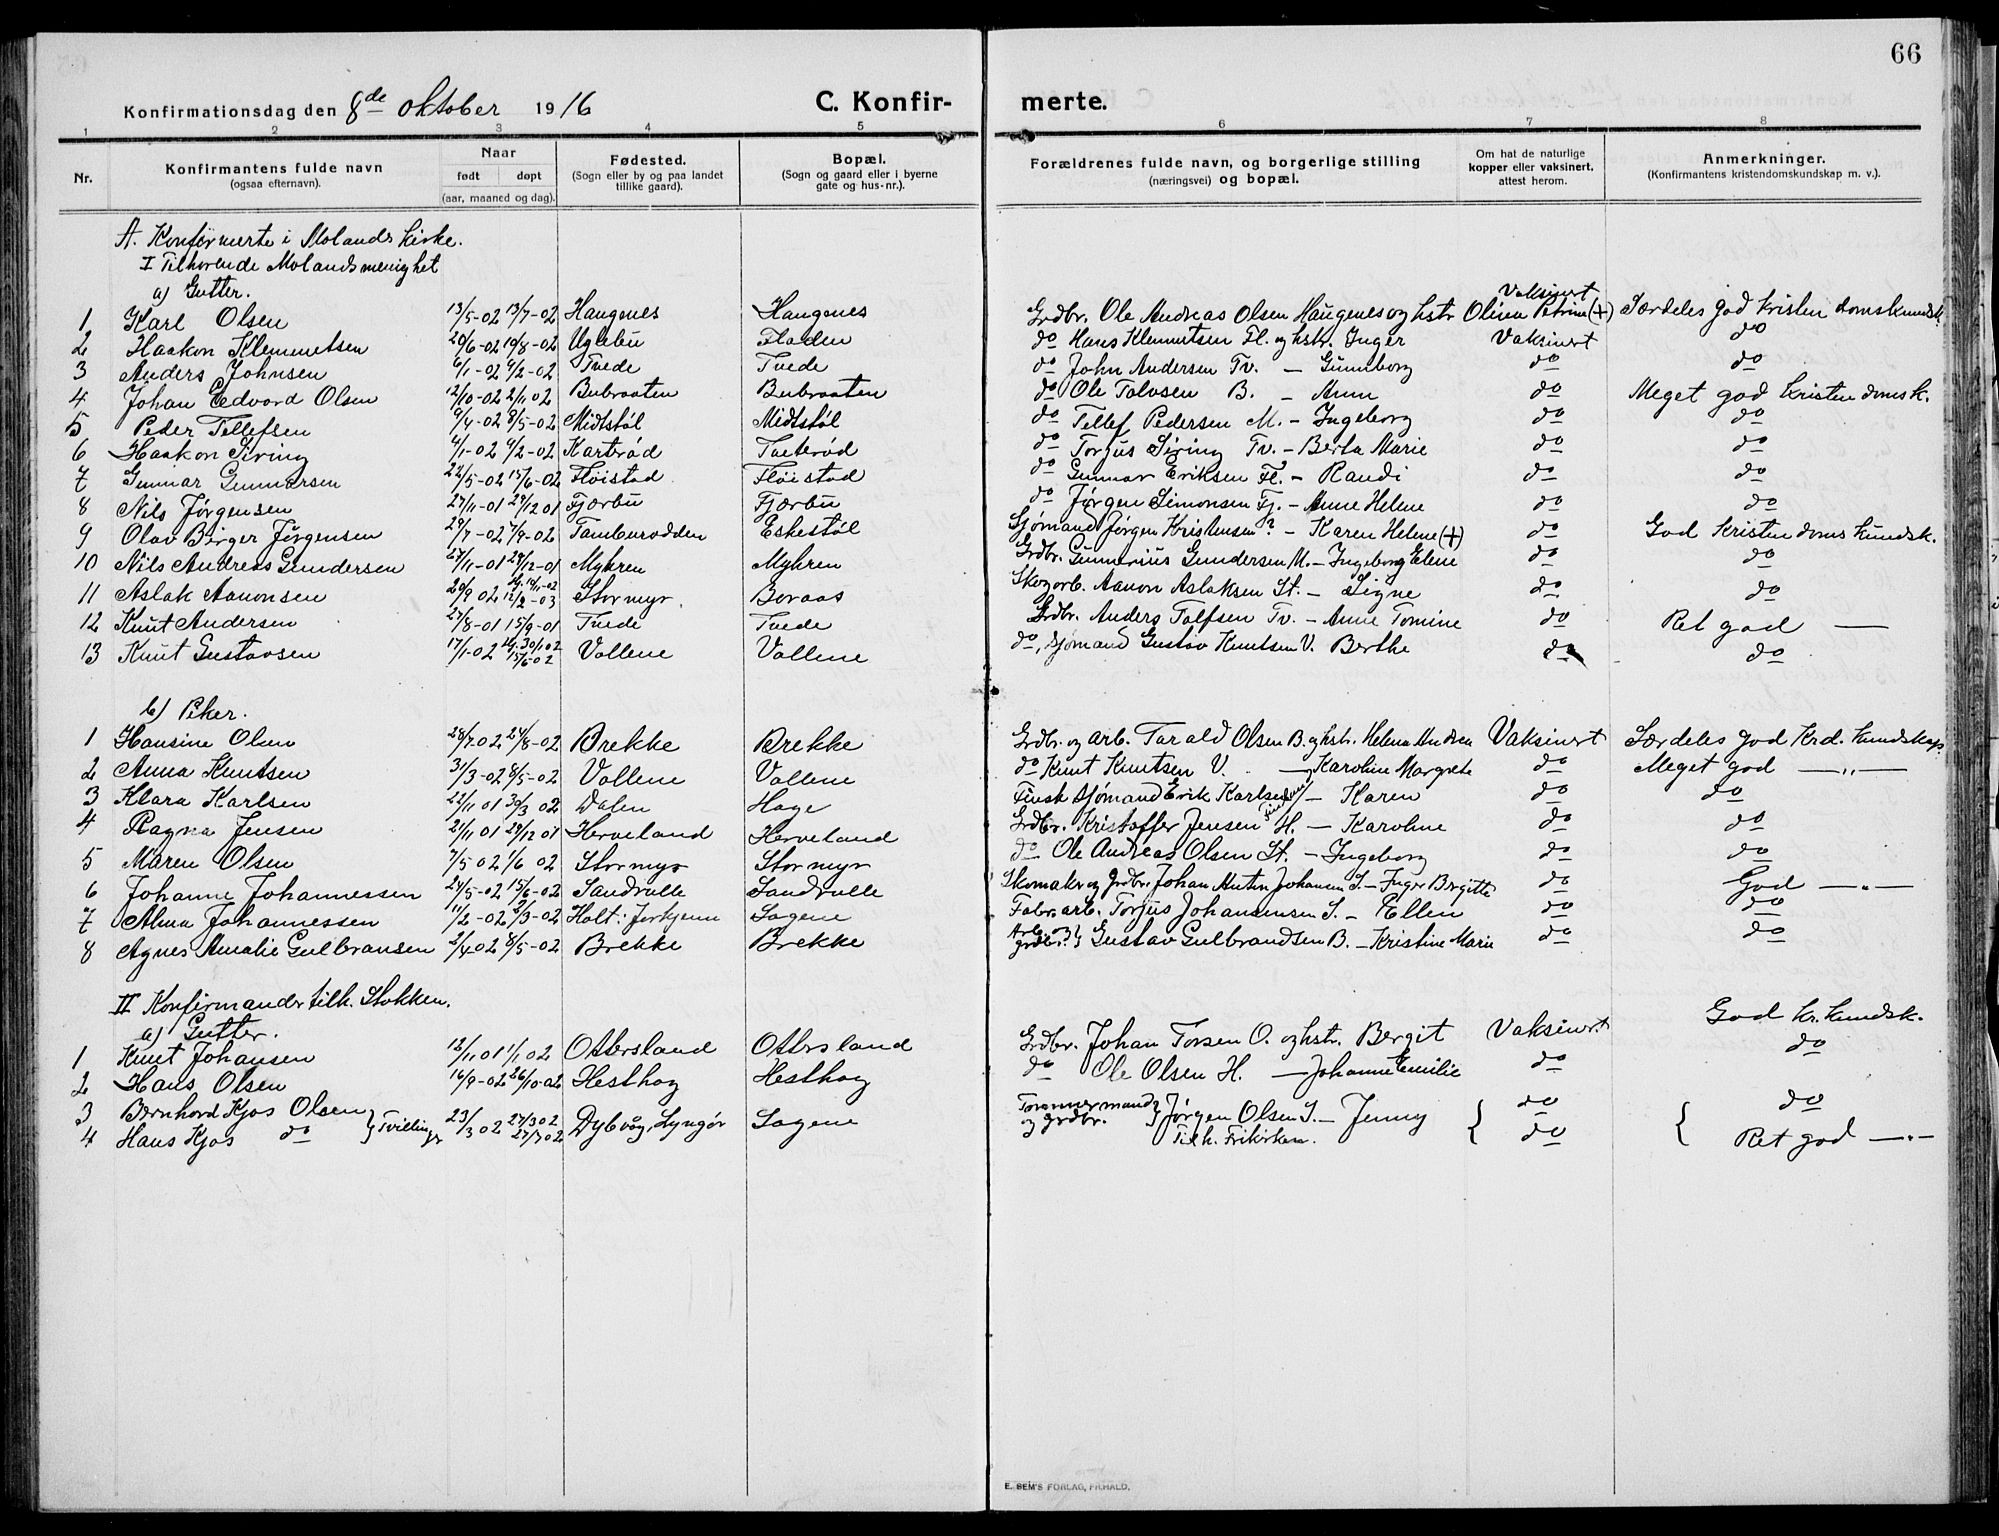 66
Konfirmationsdag den 8de oktober 1916 C. Konfirmerte.
1 2 3 4 5 6 7 8
Nr. Konfirmantens fulde navn (ogsaa efternavn). Naar født døpt (aar, maaned og dag). Fødested. (Sogn eller by og paa landet tillike gaard). Bopæl. (Sogn og gaard eller i byerne gate og hus-nr.). Forældrenes fulde navn, og borgerlige stilling (næringsvei) og bopæl. Om hat de naturlige kopper eller vaksinert, attest herom. Anmerkninger. (Konfirmantens kristendomskundskap m. v.).
A. Konfirmerte i Molands kirke.
I Tilhørende Molands menighet
a) Gutter.
1 Karl Olsen 13/5-02 13/7-02 Haugenes Haugenes Grdbr. Ole Andreas Olsen Haugenes og hstr Olivea Petrine (+) Vaksinert Særdeles god kristendomskundsk.
2 Haakon Klemmetsen 20/6-02 19/8-02 Uglebu Fladen do Hans Klemmetsen Fl. og hstr. Inger Vaksinert do
3 Anders Johnsen 6/1-02 9/2-02 Tvede Tvede do John Andersen Tv. — Gunnborg do do
4 Johan Edvard Olsen 12/10-02 2/11 02 Bubraaten Bubraaten do Ole Talvsen B. — Anna do Meget god kristendomsk.
5 Peder Tellefsen 9/4-02 8/5-02 Midtstøl Midtstøl do Tellef Pedersen M. — Ingeborg do do
6 Haakon Siring 4/1-02 9/2-02 Kartrød Tveterød do Torjus Siring Tv. — Berta Marie do do
7 Gunnar Gunnarsen 22/5-02 15/6-02 Fløistad Fløistad do Gunnar Eriksen Fl. — Randi do do
8 Nils Jørgensen 27/11-01 29/12 01 Fjærbu Fjærbu do Jørgen Simonsen Fj. — Anne Helene do do
9 Olav Birger Jørgensen 29/7-02 7/9-02 Tamburodden Eskestøl Sjømand Jørgen Kristensen? — Karen Helene (+) do God kristendomskundsk.
10 Nils Andreas Gundersen 27/11-01 29/12-01 Myhren Myhren Grdbr. Gunnerius Gundersen M. — Ingeborg Elene do do
11 Aslak Aanonsen 20/9 02 12/2-03 Stormyr. Boraas Skogarb. Aanon Aslaksen St. — Signe do do
12 Knut Andersen 27/8-01 15/9-01 Tvede Tvede Grdbr. Anders Talfsen Tv. — Anne Tomine do Ret god —
13 Knut Gustavsen 17/1-02 hj. 30/1 02 15/6-02 Vollene Vollene do, sjømand Gustav Knutsen V. Berthe do do
b) Piker.
1 Hansine Olsen 28/7-02 24/8-02 Brekke Brekke Grdbr. og arb. Tarald Olsen B. og hstr. Helena Andrea Vaksinert Særdeles god Krd. kundskap.
2 Anna Knutsen 31/3-02 8/5-02 Vollene Vollene do Knut Knutsen V. — Karoline Margrete do Meget god — „ —
3 Klara Karlsen 22/11 01 30/3 02 Dalen Hage Finsk sjømand Erik Karlsen — Karen do do
4 Ragna Jensen 21/11 01 29/12 01 Herveland Herveland Grdbr. Kristoffer Jensen H. — Karoline do do
5 Maren Olsen 7/5 02 1/6 02 Stormyr Stormyr do Ole Andreas Olsen St. — Ingeborg do do
6 Johanne Johannessen 24/5-02 15/6-02 Sandvalle Sandvalle Skomaker og grdbr. Johan Anton Johansen S. — Inger Bergitte do God — „ —
7 Alma Johannessen 11/2-02 9/3-02 Holt: Jerkjenn Sagene Fabr.arb. Torjus Johannesen S. — Ellen do do
8 Agnes Amalie Gulbransen 2/4-02 8/5-02 Brekke Brekke Arb. og grdbr. } Gustav Gulbrandsen B. — Kristine Marie do do
II Konfirmander tilh. Stokken.
a) Gutter.
1 Knut Johansen 12/11 01 1/1 02 Ottersland Ottersland Grdbr. Johan Torsen O. og hstr. Bergit Vaksinert God kr. kundsk.
2 Hans Olsen 16/9-02 26/10-02 Hesthag Hesthag do Ole Olsen H. — Johanne Emilie do do
3 Bernhard Kjos Olsen } Tvillinger 23/3 02 27/3 02 Dybvåg, Lyngør Sagene Tømmermand og grdbr. } Jørgen Olsen S. — Jenny { do { do
4 Hans Kjos do 27/3 02 Tilh. Frikirken. do Ret god — „ —
E. SEM'S FORLAG, FR.HALD.